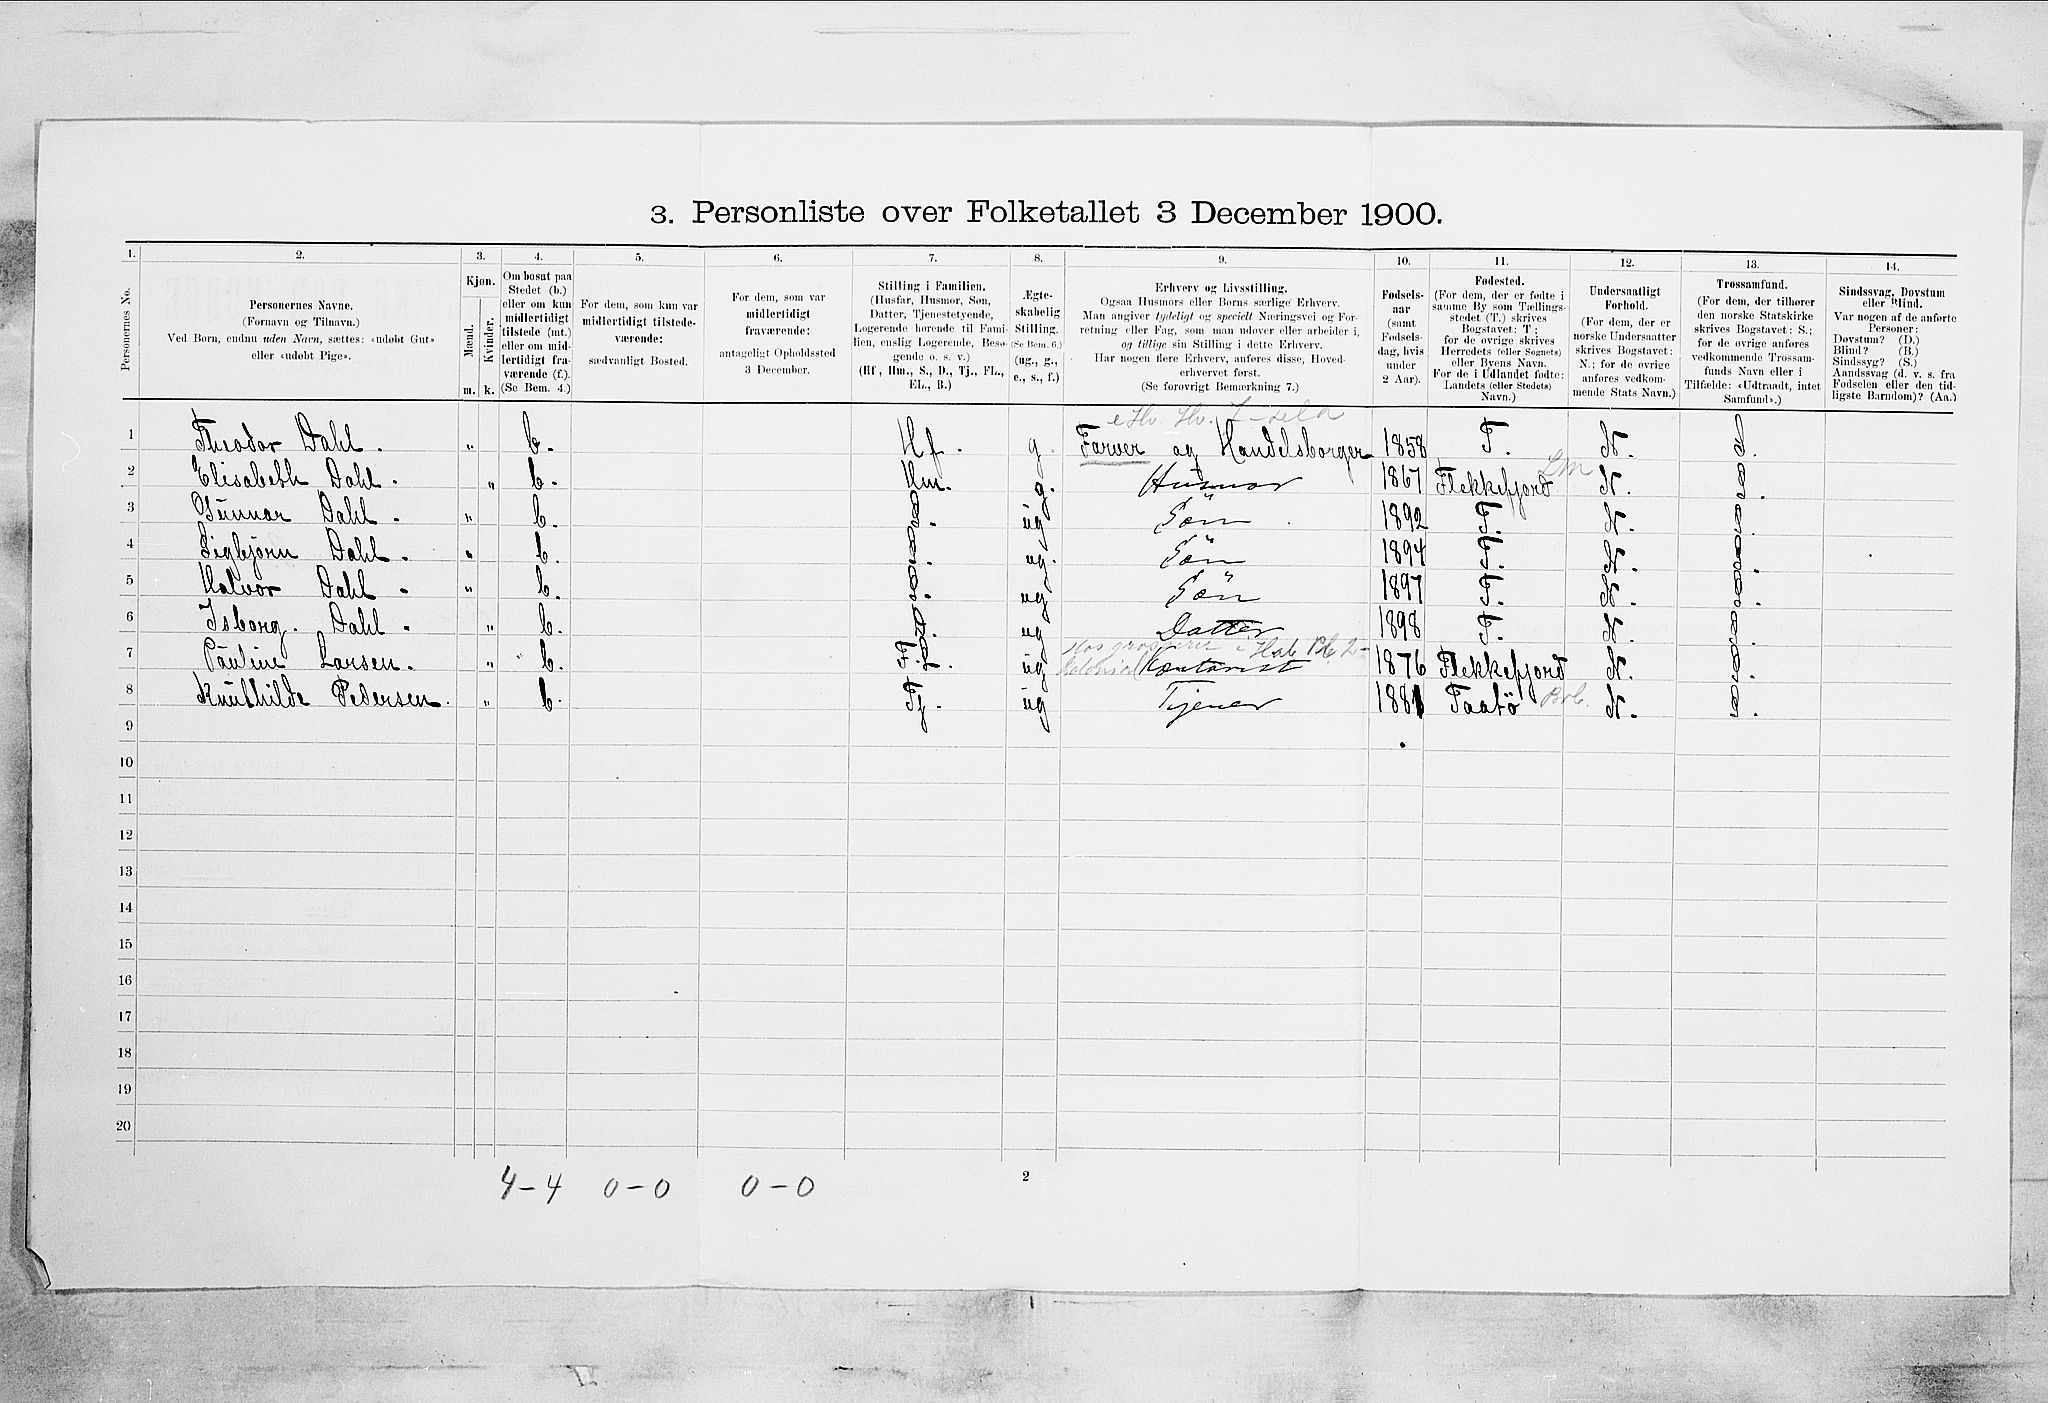 3. Personliste over Folketallet 3 December 1900.
1. 2. 3. 4. 5. 6. 7. 8. 9. 10. 11. 12. 13. 14.
Personernes No.
Personernes Navne.
(Fornavn og Tilnavn.)
Ved Børn, endnu uden Navn, sættes: «udøbt Gut»
eller «udøbt Pige».
Kjøn.
Mænd.
Kvinder.
m. k.
Om bosat paa
Stedet (b.)
eller om kun
midlertidigt
tilstede (mt.)
eller om mid-
lertidigt fra-
værende (f.).
(Se Bem. 4.)
For dem, som kun var
midlertidigt tilstede-
værende:
sædvanligt Bosted.
For dem, som var
midlertidigt
fraværende:
antageligt Opholdssted
3 December.
Stilling i Familien.
(Husfar, Husmor, Søn,
Datter, Tjenestetyende,
Logerende hørende til Fami-
lien, enslig Logerende, Besø-
gende o. s. v.)
(Hf., Hm., S., D., Tj., FL.,
EL., B.)
Ægte-
skabelig
Stilling.
(Se Bem. 6.)
(ug., g.,
e., s., f.)
Erhverv og Livsstilling.
Ogsaa Husmors eller Børns særlige Erhverv.
Man angiver tydeligt og specielt Næringsvei og For-
retning eller Fag, som man udøver eller arbeider i,
og tillige sin Stilling i dette Erhverv.
Har nogen flere Erhverv, anføres disse, Hoved-
erhvervet først.
(Se forøvrigt Bemærkning 7.)
Fødsels-
aar
(samt
Fødsels-
dag, hvis
under
2 Aar).
Fødested.
(For dem, der er fødte i
samme By som Tællings-
stedet (T.) skrives
Bogstavet: T.;
for de øvrige skrives
Herredets (eller Sognets)
eller Byens Navn.
For de i Udlandet fødte:
Landets (eller Stedets)
Navn.)
Undersaatligt
Forhold.
(For dem, der er
norske Undersaatter
skrives Bogstavet:
N.; for de øvrige
anføres vedkom-
mende Stats Navn.)
Trossamfund.
(For dem, der tilhører
den norske Statskirke
skrives Bogstavet: S.;
for de øvrige anføres
vedkommende Trossam-
funds Navn eller i
Tilfælde: «Udtraadt, intet
Samfund».)
Sindssvag, Døvstum
eller Blind.
Var nogen af de anførte
Personer:
Døvstum? (D.)
Blind? (B.)
Sindssyg? (S.)
Aandssvag (d. v. s. fra
Fødselen eller den tid-
ligste Barndom)? (Aa.)
1 Theodor Dahl. " b. Hf. g. Farver og Handelsborger 1858 T. N. S.
2 Elisabeth Dahl. " b. Hm. g. Husmor 1867 Flekkefjord N. S.
3 Gunnar Dahl. " b. S. ug Søn 1892 T. N. S.
4 Sigbjörn Dahl. " b. S. ug. Sön 1894 T. N. S.
5 Halvor Dahl. " b. S. ug Sön 1897 T. N. S.
6 Isborg. Dahl. " b. D. ug Datter 1898 T. N. S.
7 Pauline Larsen. " b. ug Contorist 1876 Flekkefjord N. S.
8 Knuthilde Pedersen. " b. Tj. ug Tjener 1881 Taatö N. S.
9
10
11
12
13
14
15
16
17
18
19
20
4-4 0-0 0-0
2